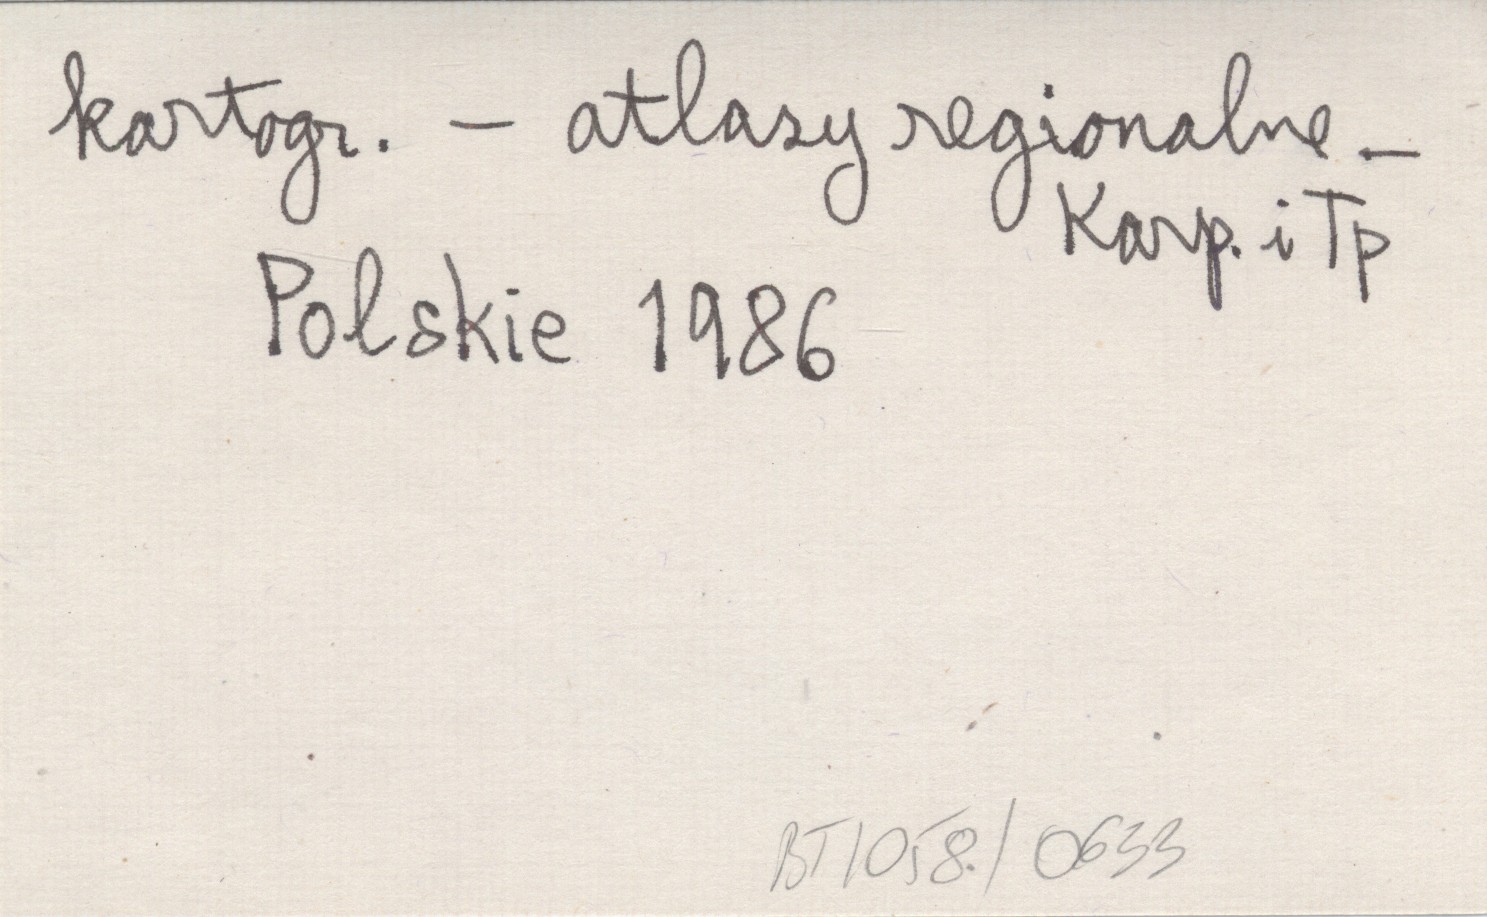 kartogr. – atlasy regionalne –
Karp. i Tp
Polskie 1986
BT/058./0633